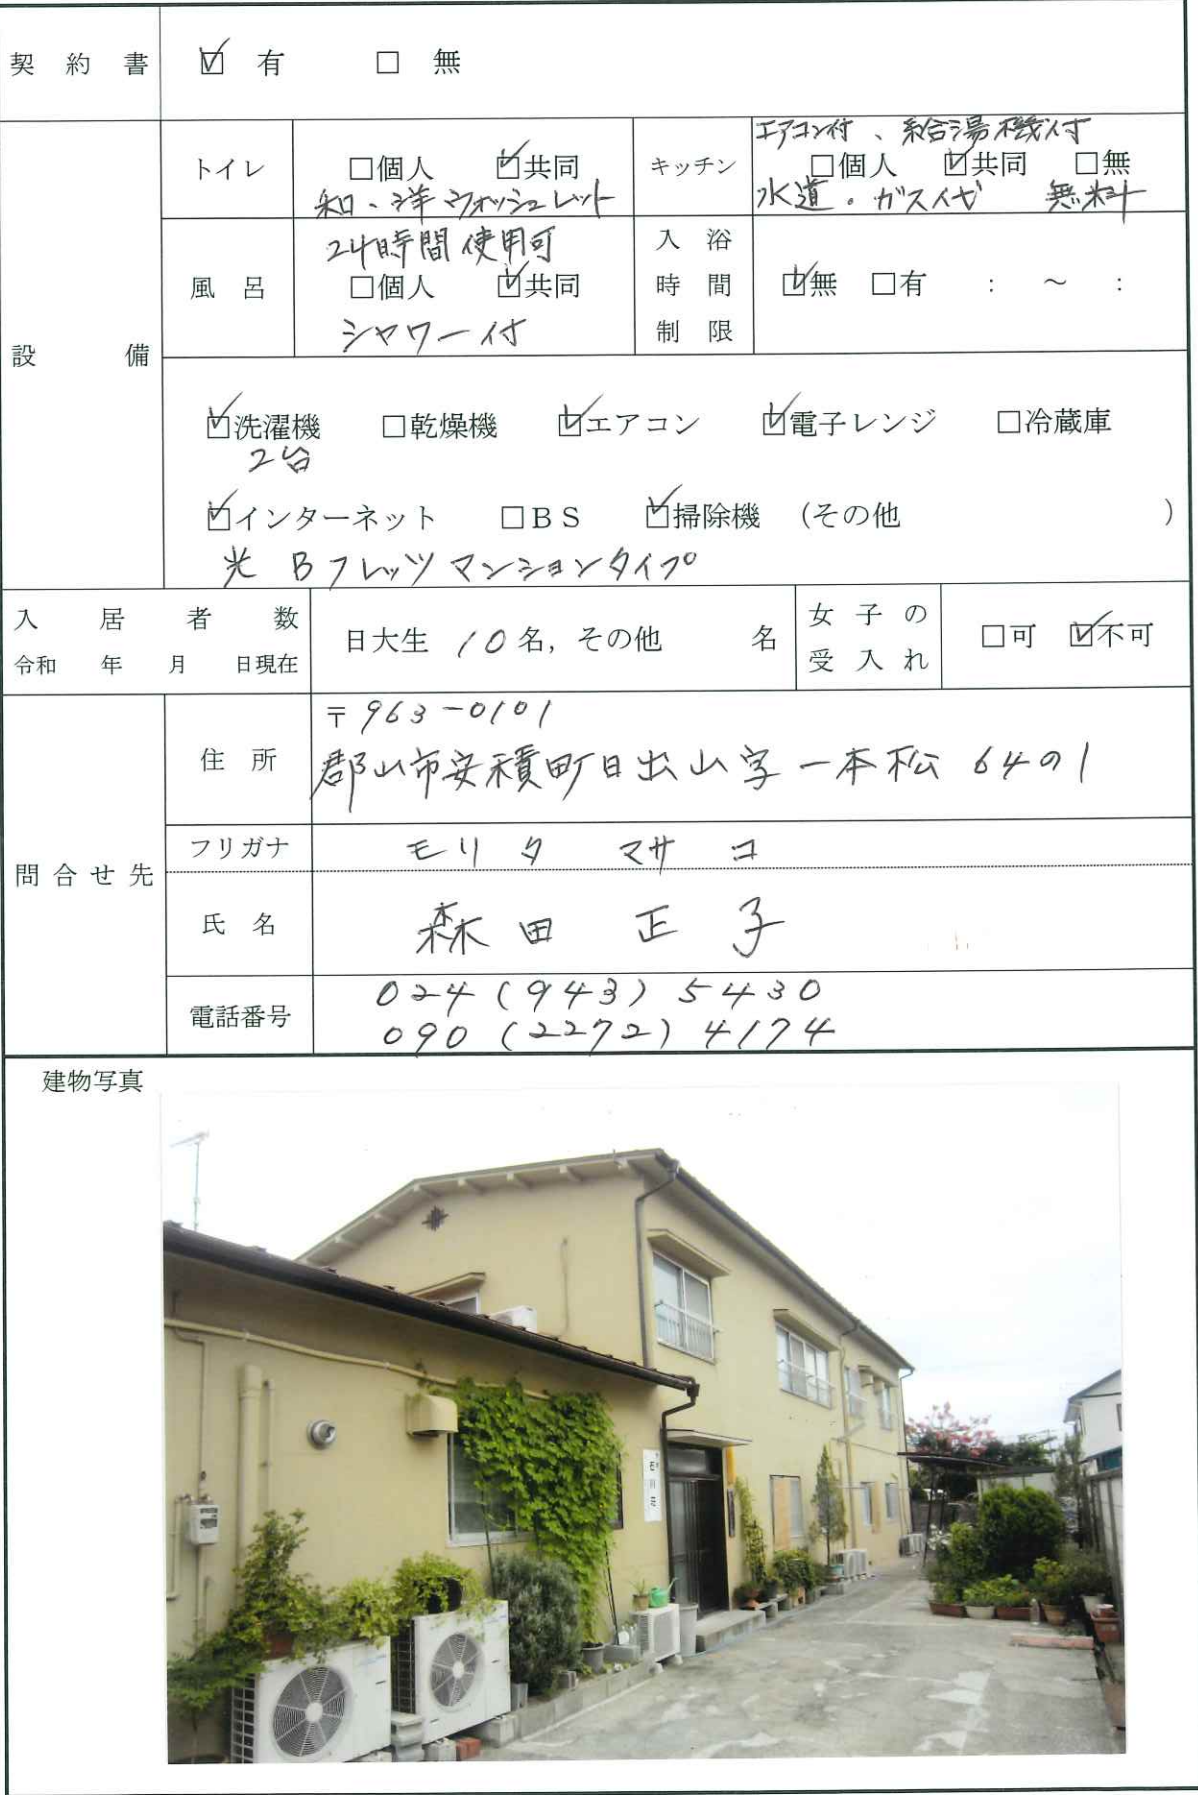 契約書 ☑有 □無
設備
トイレ □個人 ☑共同
和・洋 ウォッシュレット
キッチン
エアコン付、給湯機付
□個人 ☑共同 □無
水道・ガス代 無料
風呂
24時間使用可
□個人 ☑共同
シャワー付
入浴
時間
制限
☑無 □有 : ～ :
☑洗濯機 □乾燥機 ☑エアコン ☑電子レンジ □冷蔵庫
2台
☑インターネット □BS ☑掃除機 (その他 )
光 Bフレッツ マンションタイプ
入居者数
令和 年 月 日現在
日大生 10名, その他 名
女子の
受入れ
□可 ☑不可
問合せ先
住所
〒963-0101
郡山市安積町日出山字一本松 64の1
フリガナ モリタ マサコ
氏名 森田 正子
電話番号
024 (943) 5430
090 (2272) 4174
建物写真
石川荘